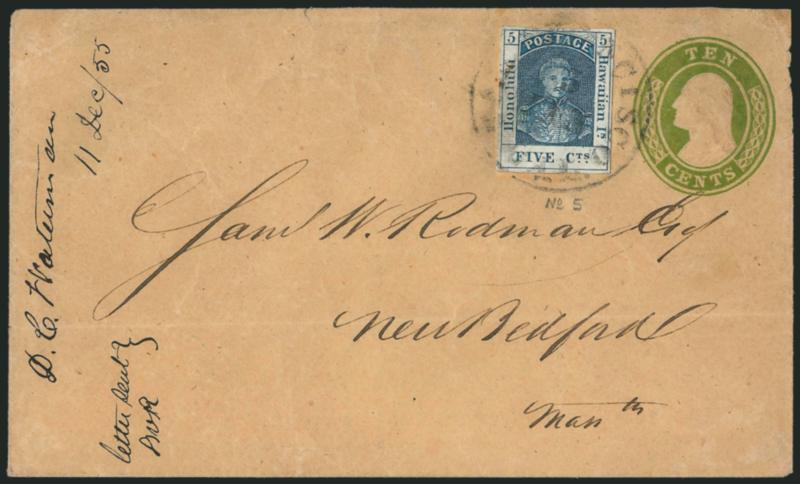 5 POSTAGE 5
Honolulu
Hawaiian Is.
FIVE Cts.
TEN
CENTS
No 5
Saml W. Rodman Esq
New Bedford
Masstts
D. C. Waterman
11 Dec/55
letter sent
SWR